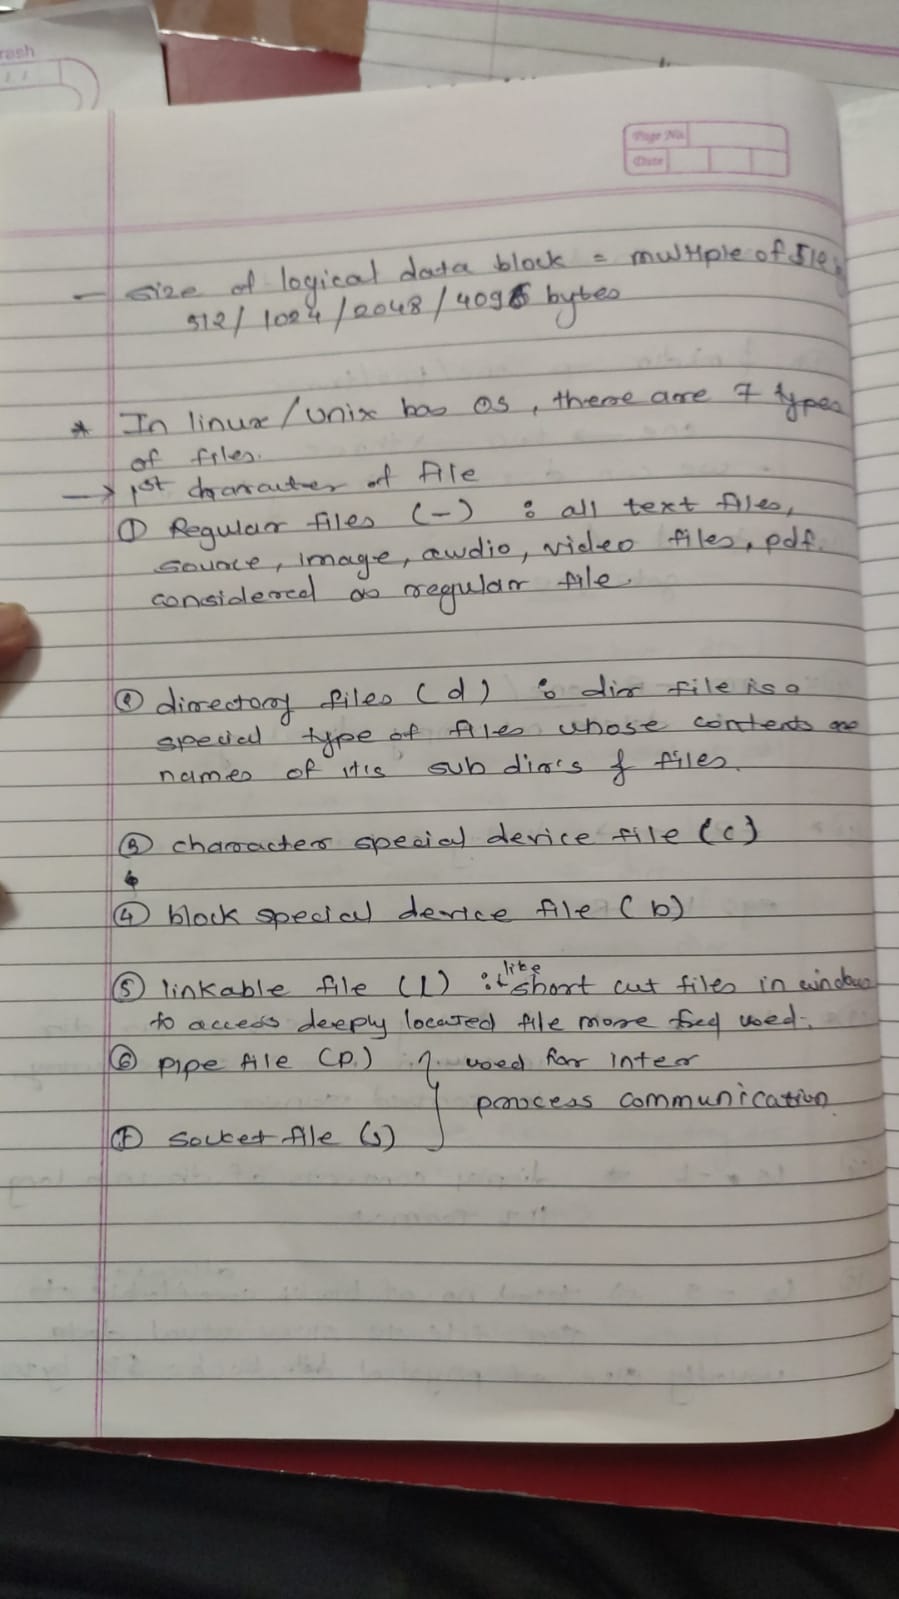 Page No.
Date
- size of logical data block = multiple of 512,
512/1024/2048/4096 bytes
* In linux/unix bas OS, there are 7 types
of files.
→ 1st character of file
① Regular files (-) : all text files,
source, image, audio, video files, pdf.
considered as regular file.
② directory files (d) : dir file is a
special type of files whose contents are
names of it's sub dirs & files.
③ character special device file (c)
④ block special device file (b)
⑤ linkable file (l) : like short cut files in windows
to access deeply located file more freq used.
⑥ pipe file (p.) } used for inter
process communication
⑦ socket file (s)